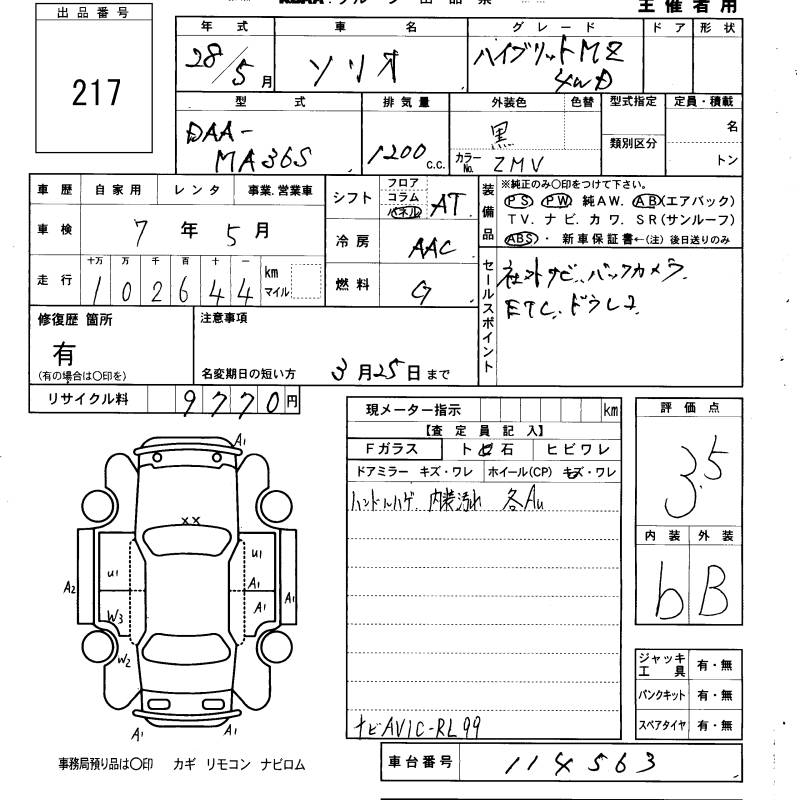 主催者用
出品番号
217
年式 車名 グレード ドア 形状
28/5月 ソリオ ハイブリットMZ
4WD
型式 排気量 外装色 色替 型式指定 定員・積載
DAA-
MA36S 1200 c.c. 黒 名
カラーNo. ZMV 類別区分 トン
車歴 自家用 レンタ 事業.営業車
車検 7年5月
走行 十万 万 千 百 十 一
102644 km マイル
シフト フロア コラム パネル AT
冷房 AAC
燃料 G
装備品 ※純正のみ〇印をつけて下さい。
PS PW 純AW. AB(エアバック)
TV. ナビ. カワ. SR(サンルーフ)
ABS・ 新車保証書←(注) 後日送りのみ
セールスポイント 社外ナビ、バックカメラ
ETC、ドラレコ
修復歴 箇所 注意事項
有
(有の場合は〇印を) 名変期日の短い方 3月25日まで
リサイクル料 9770円
現メーター指示 km
【査定員記入】
Fガラス ト ビ 石 ヒビワレ
ドアミラー キズ・ワレ ホイール(CP) キズ・ワレ
ハンドルハゲ、内装汚れ 各AU
ナビAVIC-RL99
評価点
3.5
内装 外装
b B
ジャッキ 工具 有・無
パンクキット 有・無
スペアタイヤ 有・無
A1
××
U1 U1
A2 A1 A1
W3 A1
W2
A1 A1
事務局預り品は〇印 カギ リモコン ナビロム
車台番号 114563